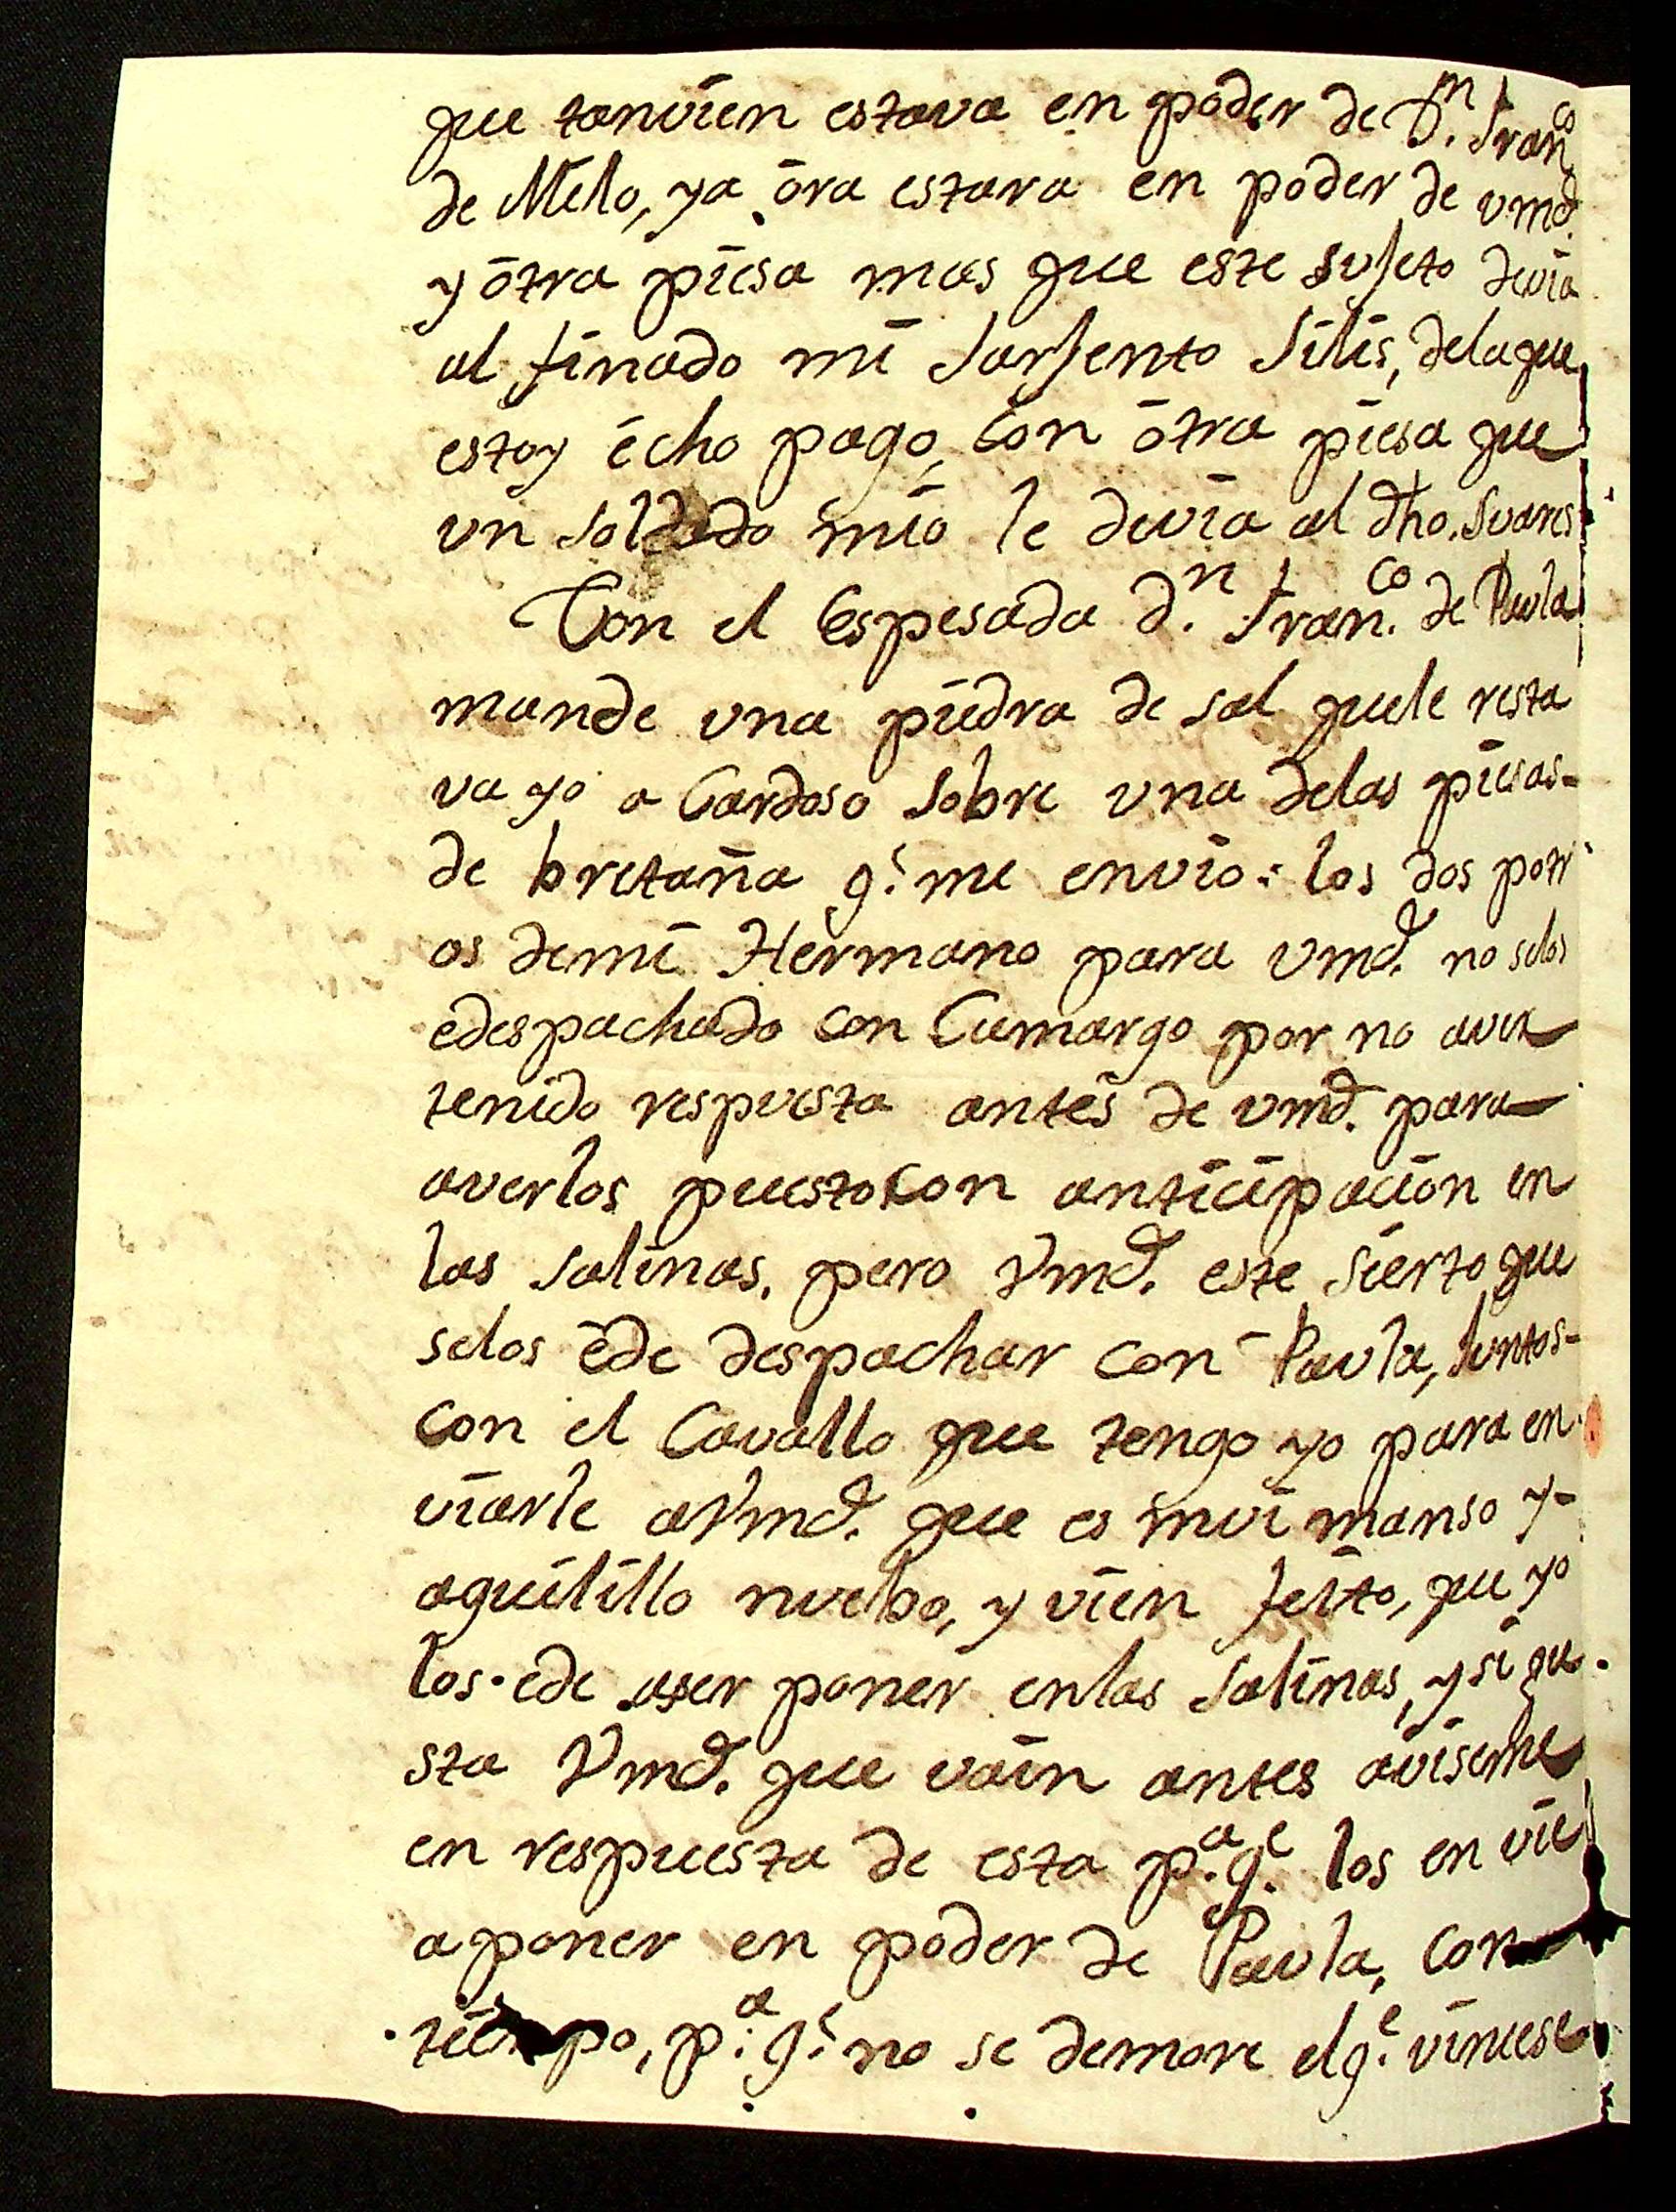 que tanvien estava en poder de D.ⁿ Fran.ᶜᵒ
de Melo, ya ōra estara en poder de vmd.
y ōtra piesa mas que este sujeto devia
al finado mi Sarjento Silis, dela que
estoy ēcho pago, con ōtra piesa que
vn soldado mio le devia al dho. Suares
Con el Espesada d.ⁿ Fran.ᶜᵒ de Pavla
mande vna piedra de sal quele resta
va yo a Cardoso sobre vna delas piesas-
de bretaña q.ᵉ me envio: los dos potr
os demi Hermano para Vmd. no selos
edespachado con Camargo por no aver
tenido respuesta antes de vmd. para
averlos puesto con anticipacion en
las salinas, pero Vmd. este sierto que
selos ēde despachar con Pavla, Juntos-
con el Cavallo que tengo yo para en
viarle aVmd. que es mui manso y-
aguilillo nuebo, y vien feito, que yo
los ede aser poner enlas Salinas, y si gu
sta Vmd. que vain antes aviseme
en respuesta de esta p.ᵃ q.ᵉ los en vie
a poner en poder de Pavla, con
tiempo, p.ᵃ q.ᵉ no se demore el q.ᵉ viniese